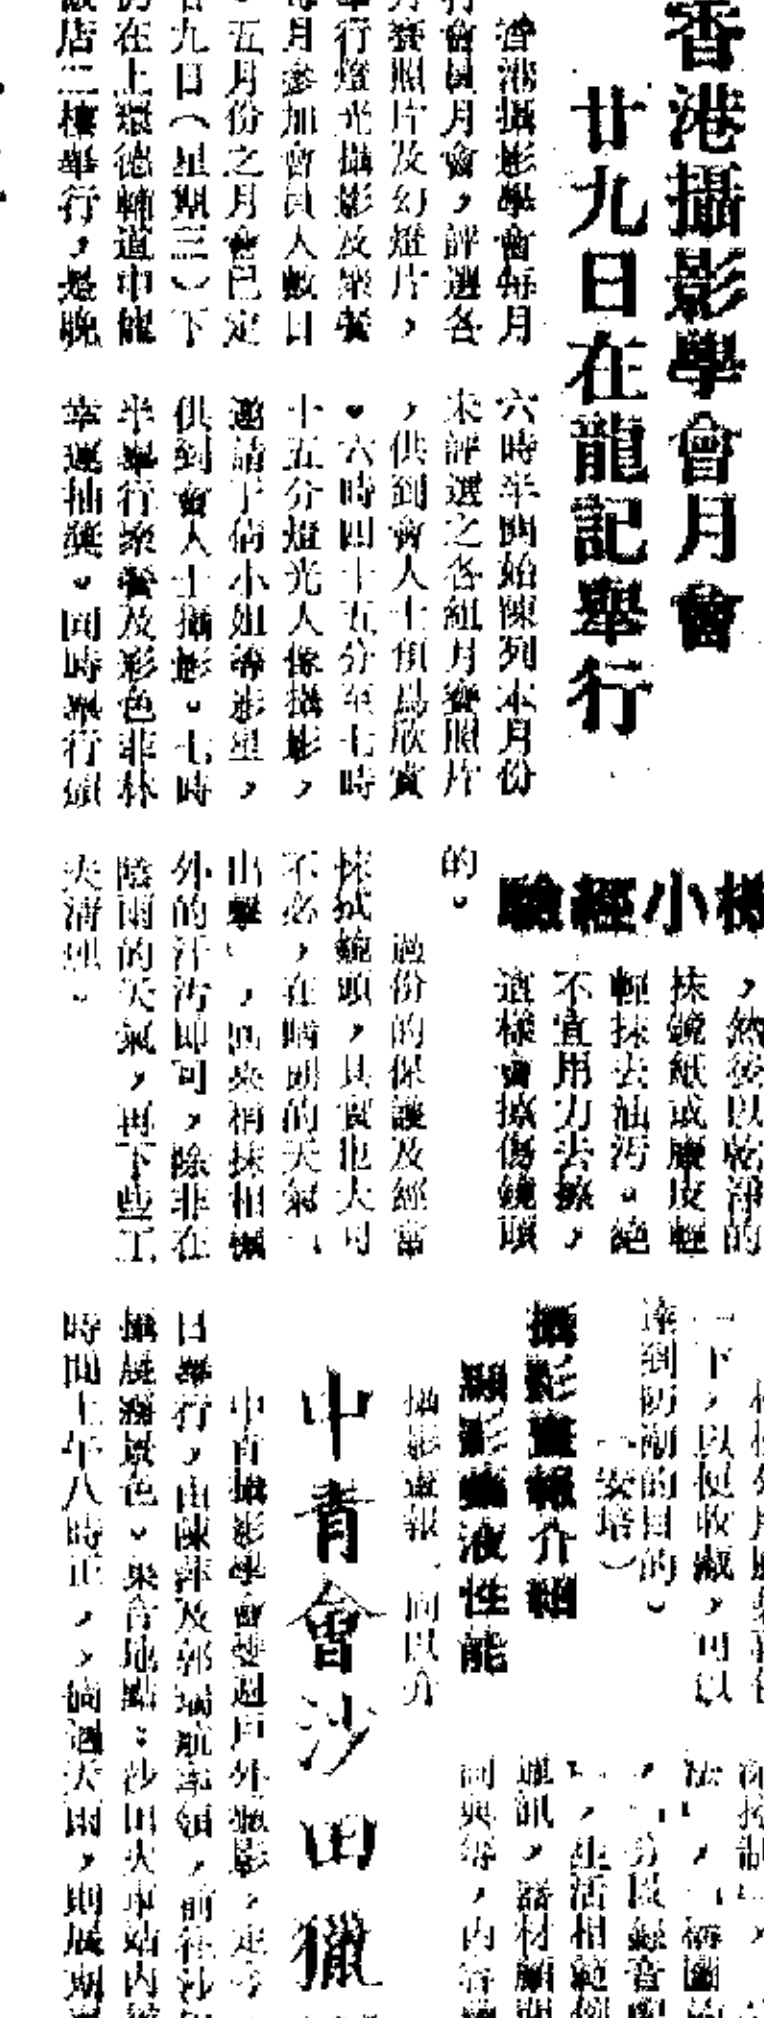 香港攝影學會月會
廿九日在龍記舉行
香港攝影學會每月
會員月會，評選各
月賽照片及幻燈片，
舉行燈光攝影及聚餐
每月參加會員人數日
。五月份之月會已定
廿九日（星期三）下
仍在上環德輔道中龍
飯店二樓舉行，是晚
六時半開始陳列本月份
未評選之各組月賽照片
，供到會人士預為欣賞
。六時四十五分至七時
十五分燈光人像攝影，
邀請于倩小姐等影星，
供到會人士攝影。七時
半舉行聚餐及彩色菲林
幸運抽獎。同時舉行頒
驗經小
，然後以乾淨的
抹鏡紙或麂皮輕
輕抹去油污。絕
不宜用力去擦，
這樣會擦傷鏡頭
的。
過份的保護及經常
抹拭鏡頭，其實也大可
不必，在晴朗的天氣「
出擊」，回來稍抹相機
外的汗污即可，除非在
陰雨的天氣，再下些工
夫清理。
一下，以便收藏，可以
達到防潮的目的。
（安培）
攝影畫報介紹
顯影藥液性能
攝影畫報一向以介
法」，
，生活相範例
通訊，器材顧問
詞典等，內容
中青會沙田獵
中青攝影學會雙週戶外攝影，定今
日舉行，由陳萍及郭瑞航率領，前往沙田
攝晨霧景色。集合地點：沙田火車站內
時間上午八時正，，倘遇天雨，則展期